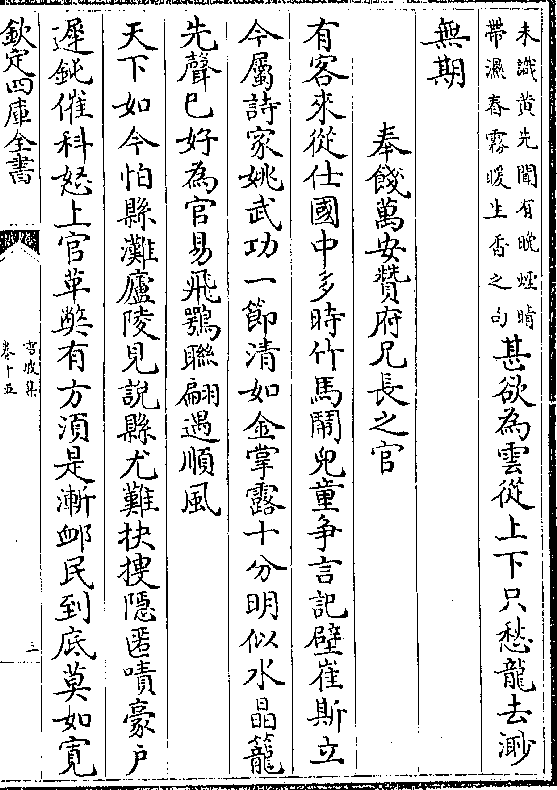 未識黃先聞有晚煙晴
帶濕春霧暖生香之句
甚欲為雲從上下只愁龍去渺
無期
奉餞萬安贊府兄長之官
有客來從仕國中多時竹馬鬧兒童爭言記壁崔斯立
今屬詩家姚武功一節清如金掌露十分明似水晶籠
先聲已好為官易飛鶚聯翩遇順風
天下如今怕縣灘廬陵見說縣尤難抉摟隱匿嘖豪戶
遲鈍催科怒上官革弊有方須是漸卹民到底莫如寬
欽定四庫全書
雪坡集
卷十五
三